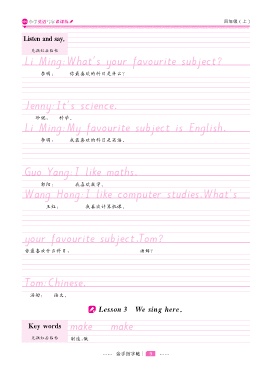 小学英语写字课课练
四年级（上）
Listen and say.
见课标兵后标
Li Ming:What's your favourite subject?
李明： 你最喜欢的科目是什么？
Jenny:It's science.
珍妮： 科学。
Li Ming:My favourite subject is English.
李明： 我最喜欢的科目是英语。
Guo Yang:I like maths.
郭阳： 我喜欢数学。
Wang Hong:I like computer studies.What's
王红： 我喜欢计算机课。
your favourite subject,Tom?
你最喜欢什么科目， 汤姆？
Tom:Chinese.
汤姆： 语文。
Lesson 3 We sing here.
Key words make make
制造,做